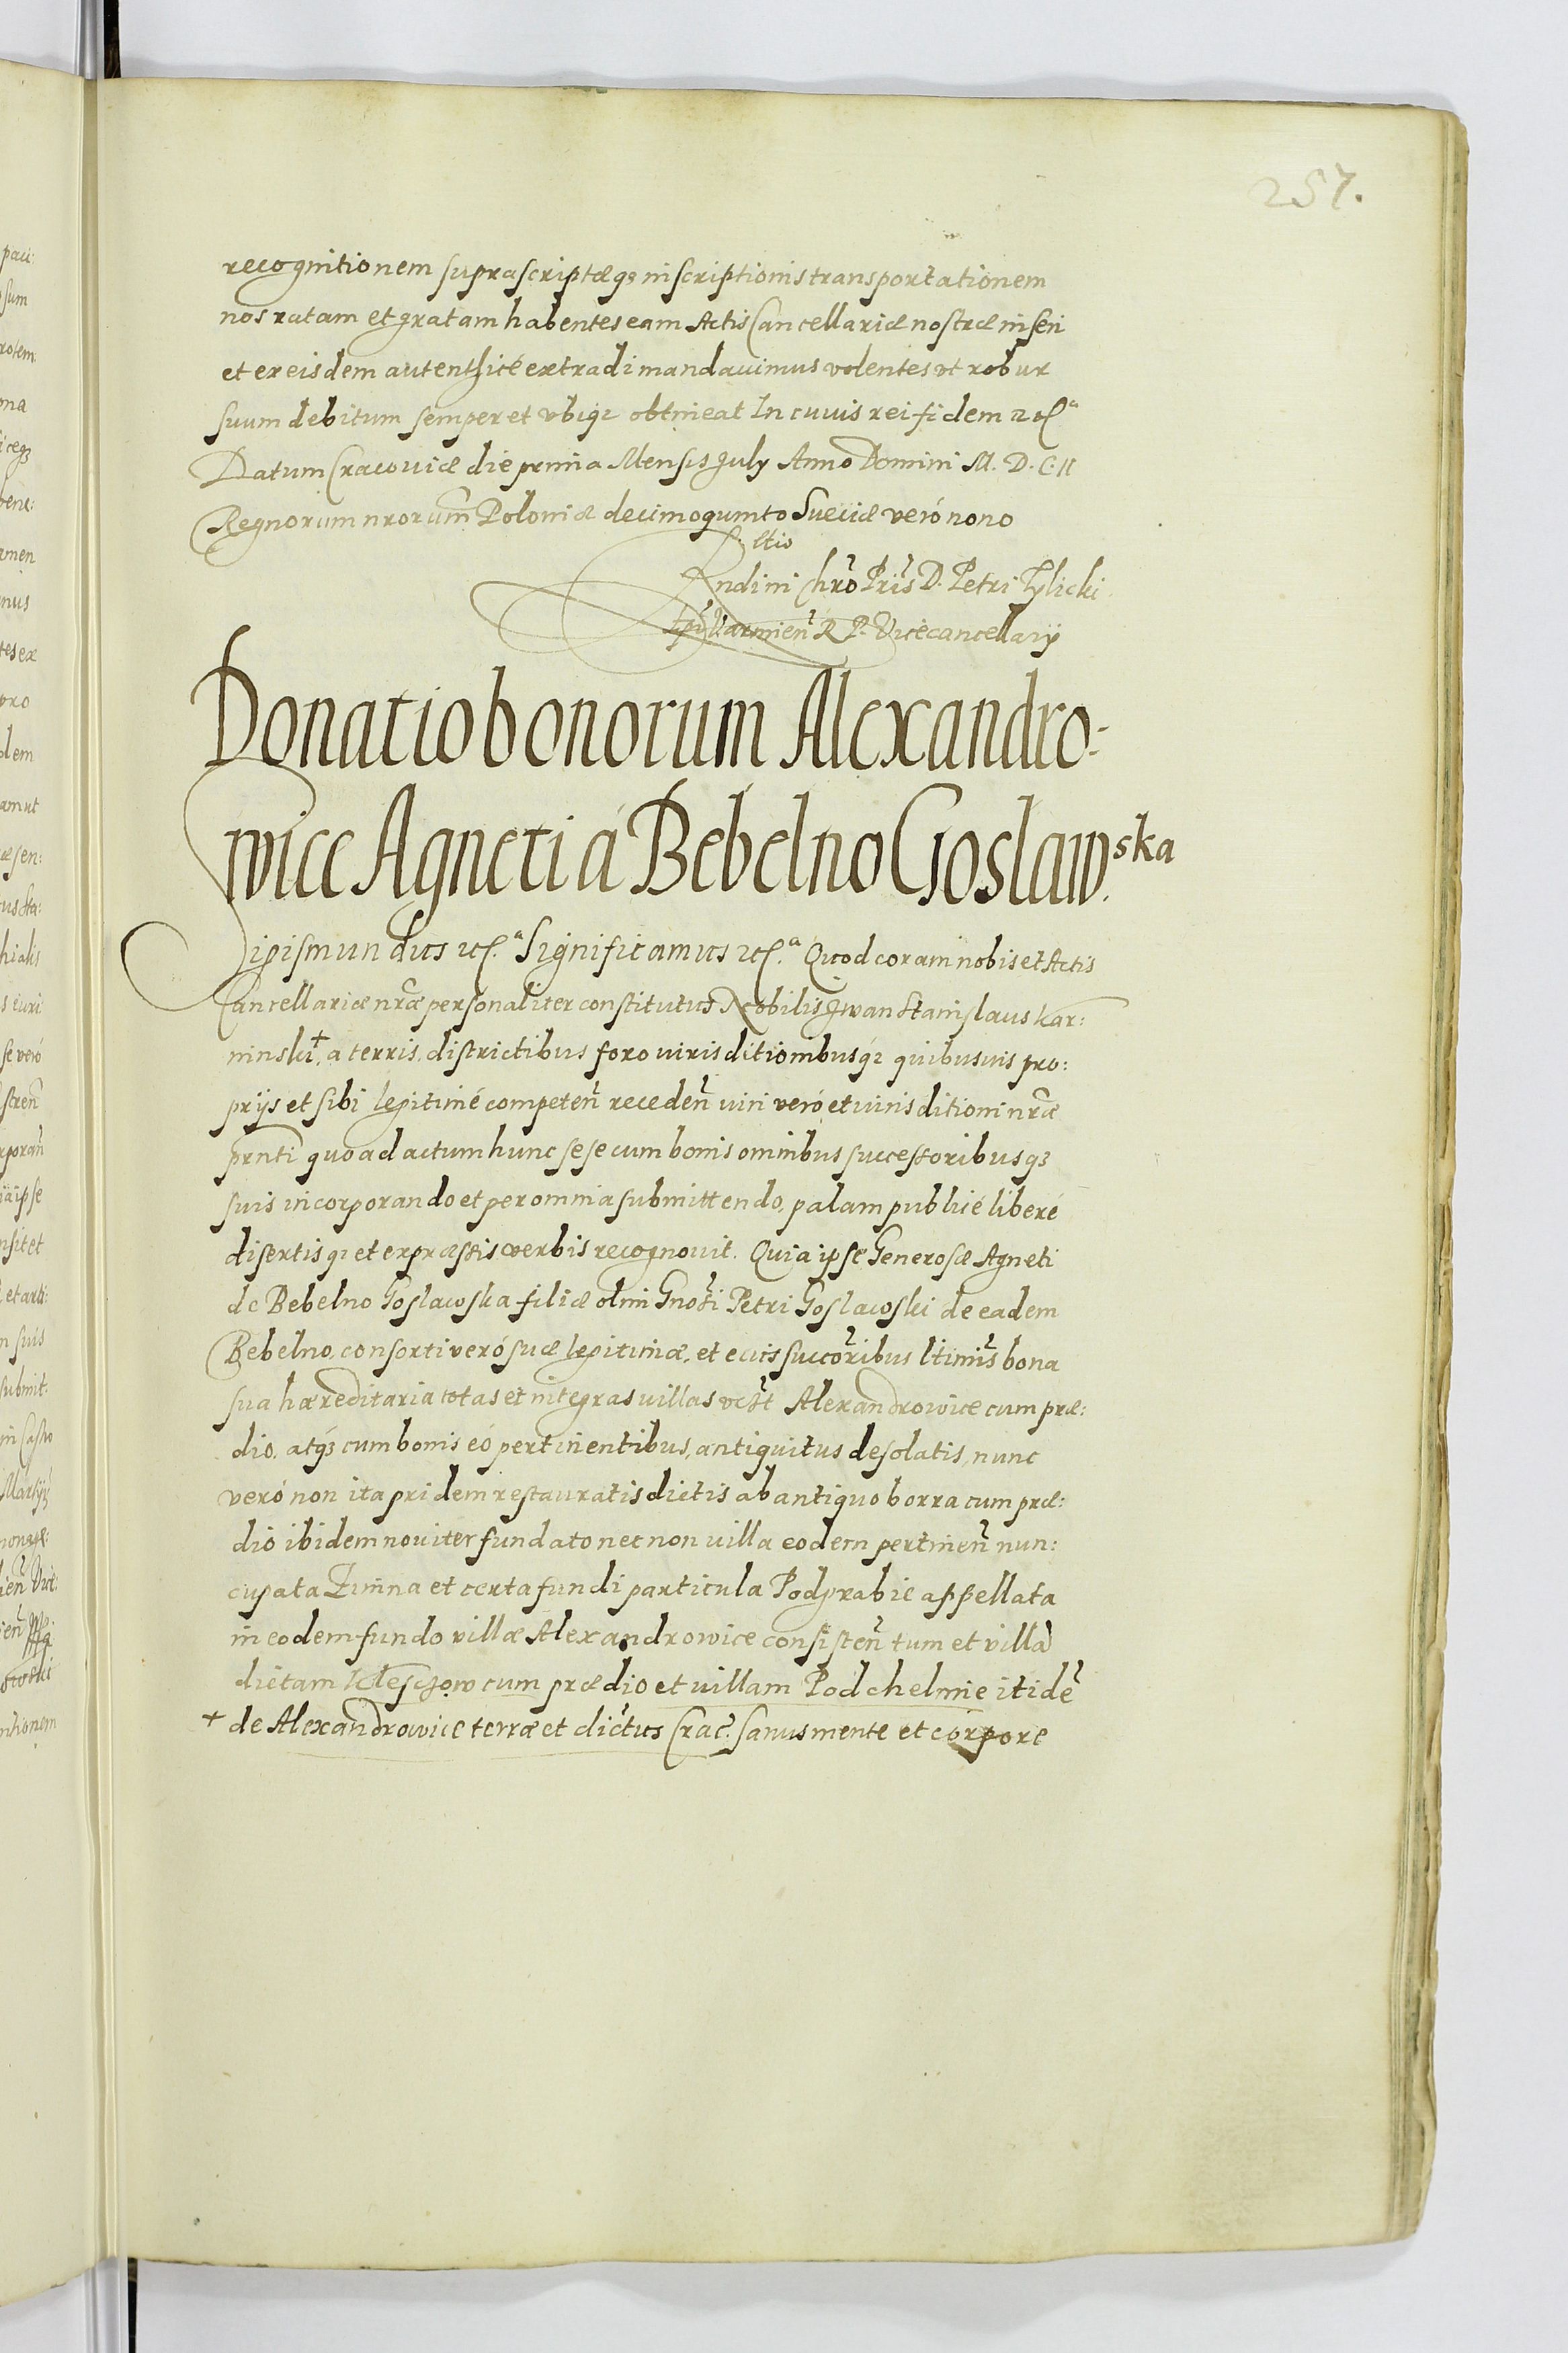 257.
recognitionem suprascriptæq3 inscriptionis transportationem
nos ratam et gratam habentes eam Actis Cancellariæ nostræ inseri
et ex eisdem autenthicè extradi mandavimus volentes vt robur
suum debitum semper et vbiq3 obtineat In cuius rei fidem etc
Datum Cracoviæ die prima Mensis July Anno Domini M. D. C. II
Regnorum nrorum Poloniæ decimoquinto Sueciæ veró nono
R̃ltio
Rndi in Chro Pris D. Petri Tylicki
Epi Varmien R P. Vicecancellarij
Donatio bonorum Alexandro-
wice Agneti á Bebelno Goslaw.ska
Sigismundus etc.a Significamus etc.a Quod coram nobis et Actis
Cancellariæ nræ personaliter constitutus Nobilis Jwan Stanislaus Kar:
ninski + a terris, districtibus foro iurisditionibusq3 quibusuis pro:
prijs et sibi legitimé competen receden iuri veró et iurisditioni nræ
prnti quo ad actum hunc sese cum bonis omnibus successoribusq3
suis incorporando et per omnia submittendo, palam publicé liberé
disertisq3 et expressis verbis recognovit. Quia ipse Generosæ Agneti
de Bebelno Goslawska filiæ olim Gnosi Petri Goslawski de eadem
Bebelno, consorti veró suæ legitimæ, et eius succoribus ltimis bona
sua hæreditaria totas et integras villas vdzt Alexandrowice cum præ:
dio, atq3 cum bonis eó pertinentibus, antiquitus desolatis, nunc
veró non ita pridem restauratis dictis ab antiquo borra cum præ:
dio ibidem noviter fundato nec non villa eodem pertinen nun:
cupata Zimna et certa fundi particula Podgrabie appellata
in eodem fundo villæ Alexandrowice consisten tum et villã
dictam Kleszczow cum prædio et villam Podchelmie itidẽ
+ de Alexandrowice terræ et dictus Crac. sanus mente et corpore